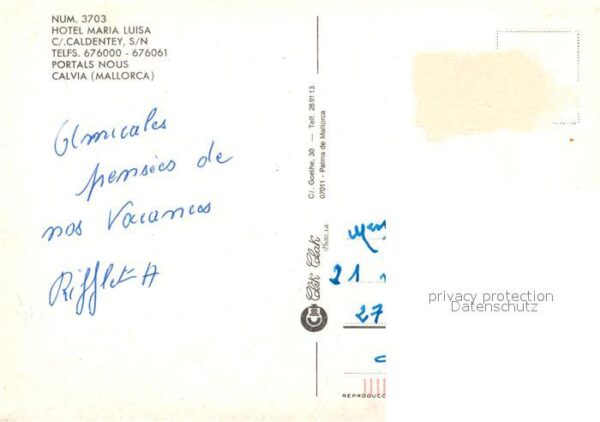 NUM. 3703
HOTEL MARIA LUISA
C/.CALDENTEY, S/N
TELFS. 676000 - 676061
PORTALS NOUS
CALVIA (MALLORCA)
Amicales
pensées de
nos Vacances
Rifflet A
C/. Goethe, 30 — Telf. 289113
07011 - Palma de Mallorca
Clik Clak
21
27
REPRODUCC
privacy protection
Datenschutz